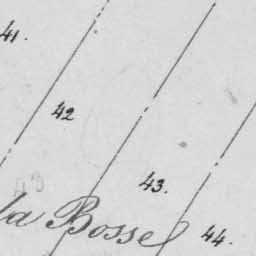 41.
42
43.
la Bosse
44.